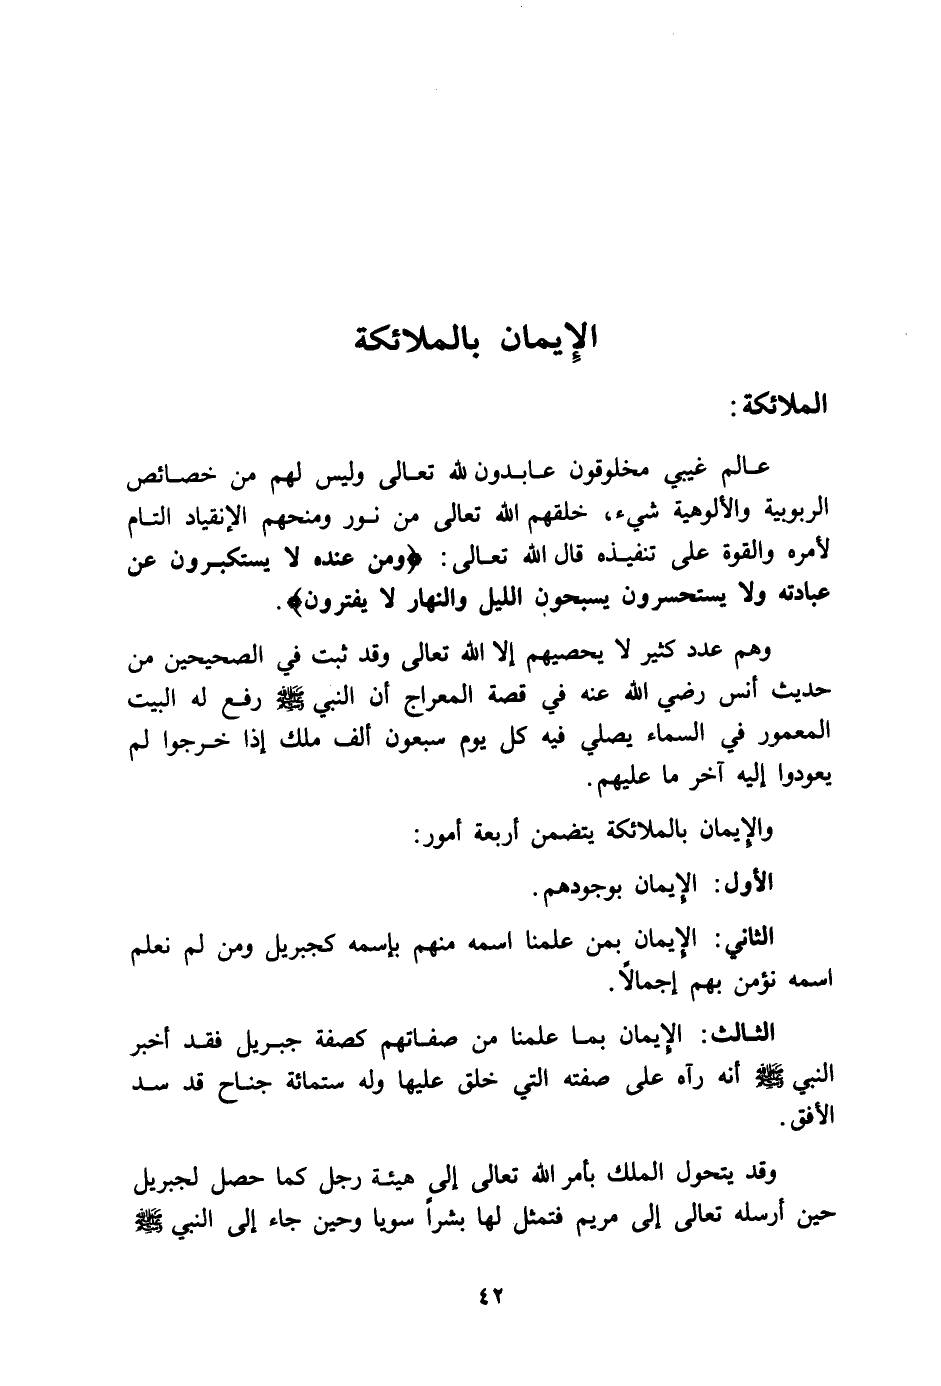 الإيمان بالملائكة
الملائكة:
عالم غيبي مخلوقون عابدون لله تعالى وليس لهم من خصائص
الربوبية والألوهية شيء، خلقهم الله تعالى من نور ومنحهم الإنقياد التام
لأمره والقوة على تنفيذه قال الله تعالى: ﴿ومن عنده لا يستكبرون عن
عبادته ولا يستحسرون يسبحون الليل والنهار لا يفترون﴾.
وهم عدد كثير لا يحصيهم إلا الله تعالى وقد ثبت في الصحيحين من
حديث أنس رضي الله عنه في قصة المعراج أن النبي ﷺ رفع له البيت
المعمور في السماء يصلي فيه كل يوم سبعون ألف ملك إذا خرجوا لم
يعودوا إليه آخر ما عليهم.
والإيمان بالملائكة يتضمن أربعة أمور:
الأول: الإيمان بوجودهم.
الثاني: الإيمان بمن علمنا اسمه منهم بإسمه كجبريل ومن لم نعلم
اسمه نؤمن بهم إجمالاً.
الثالث: الإيمان بما علمنا من صفاتهم كصفة جبريل فقد أخبر
النبي ﷺ أنه رآه على صفته التي خلق عليها وله ستمائة جناح قد سد
الأفق.
وقد يتحول الملك بأمر الله تعالى إلى هيئة رجل كما حصل لجبريل
حين أرسله تعالى إلى مريم فتمثل لها بشراً سويا وحين جاء إلى النبي ﷺ
٤٢